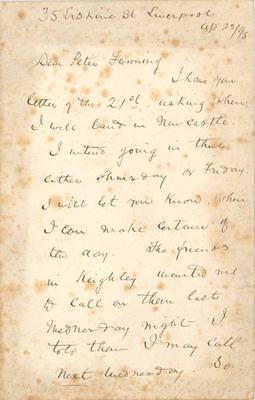 35 Erskine St Liverpool
Ap. 22/95
Dear Peter Fanning
I have your
letter of the 21st. asking when
I will land in Newcastle.
I intend going in there
either Thursday or Friday.
I will let you know when
I can make certain of
the day. The friends
in Keighley wanted me
to call on them last
Wednesday night. I
told them I may call
Next Wednesday. So